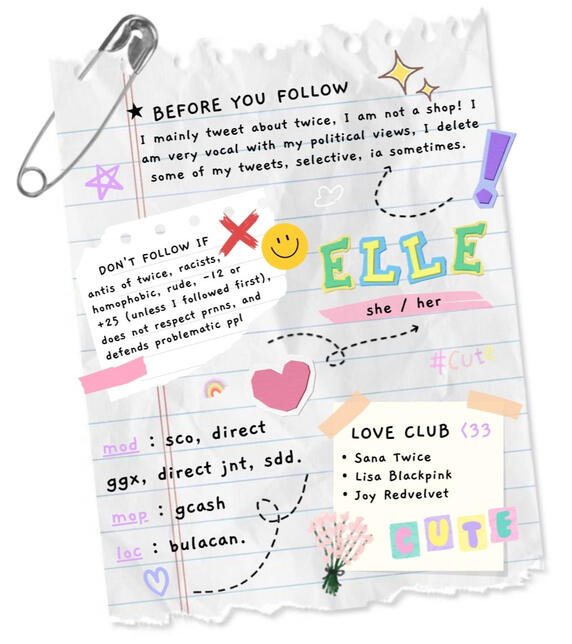 ★ BEFORE YOU FOLLOW
I mainly tweet about twice, I am not a shop! I
am very vocal with my political views, I delete
some of my tweets, selective, ia sometimes.
DON'T FOLLOW IF
antis of twice, racists,
homophobic, rude, -12 or
+25 (unless I followed first),
does not respect prnns, and
defends problematic ppl
ELLE
she / her
#Cute
mod : sco, direct
ggx, direct jnt, sdd.
mop : gcash
loc : bulacan.
LOVE CLUB <33
• Sana Twice
• Lisa Blackpink
• Joy Redvelvet
CUTE